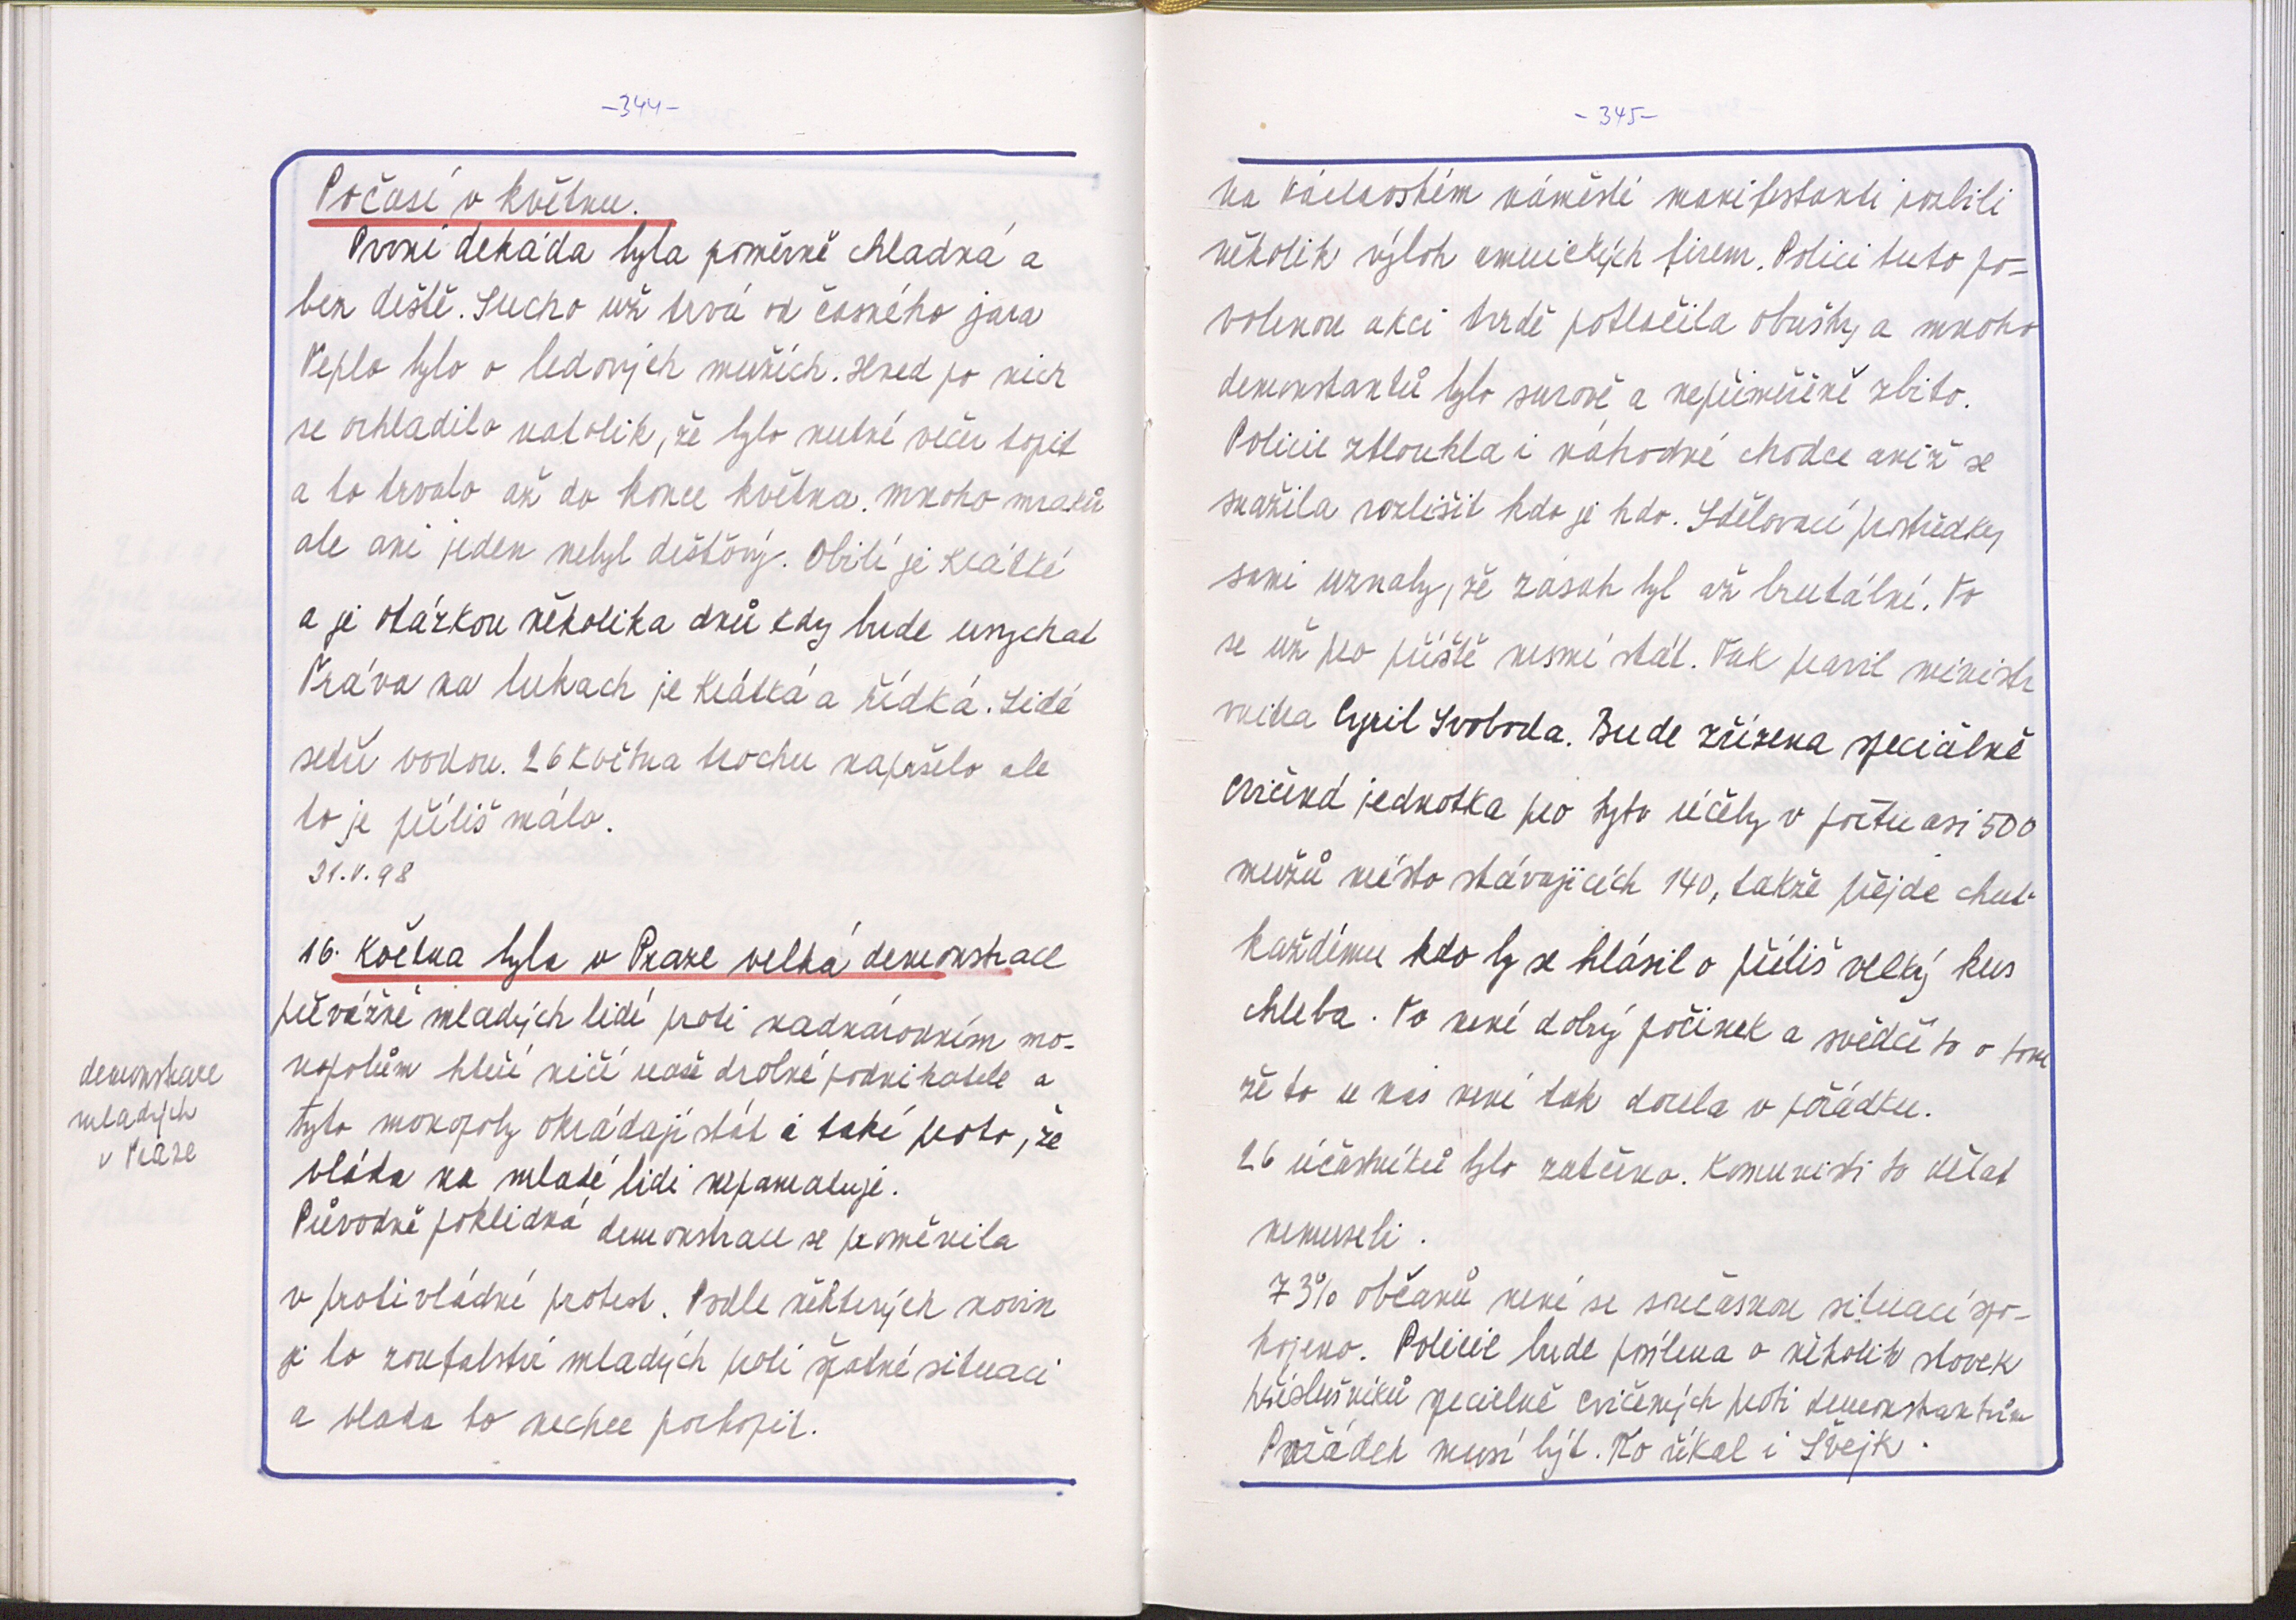 -344-
Počasí v květnu.
První dekáda byla poměrně chladná a
bez deště. Sucho už trvá od časného jara
Teplo bylo o ledových mužích. Hned po nich
se ochladilo natolik, že bylo nutné večer topit
a to trvalo až do konce května. mnoho mraků
ale ani jeden nebyl deštový. Obilí je krátké
a je otázkou několika dnů kdy bude usychat
Tráva na lukach je krátká a řídká. Lidé
šetří vodou. 26 května trochu napršelo ale
to je příliš málo.
31.V.98
16. května byla v Praze velká demonstrace
převážně mladých lidí proti nadnárodním mo-
nopolům kteří ničí naše drobné podnikatele a
tyto monopoly okrádají stát i také proto, že
vláda na mladé lidi nepamatuje.
Původně poklidná demonstrace se proměnila
v protivládní protest. Podle některých novin
je to zoufalství mladých proti špatné situaci
a vlada to nechce pochopit.
demonstrace
mladých
v Praze
-345-
Na Václavském náměstí manifestanti rozbili
několik výloh amerických firem. Policie tuto po-
volenou akci tvrdě potlačila obušky a mnoho
demonstantů bylo surově a nepřiměřeně zbito.
Policie ztloukla i náhodné chodce aniž se
snažila rozlišit kdo je kdo. Sdělovací prostředky
sami uznaly, že zásah byl až brutální. To
se už pro příště nesmí stát. Tak pravil ministr
vnitra Cyril Svoboda. Bude zřízena speciálně
cvičená jednotka pro tyto účely v počtu asi 500
mužů místo stávajících 140, takže přejde chuť
každému kdo by se hlásil o příliš velký kus
chleba. To není dobrý počinek a svědčí to o tom
že to u nás není tak docela v pořádku.
26 účastníků bylo zatčeno. Komunisti to dělat
nemuseli.
73% občanů není se současnou situací spo-
kojeno. Policie bude posílena o několik stovek
příslušníků specielně cvičených proti demonstrantům
Pořádek musí být. To říkal i Švejk.